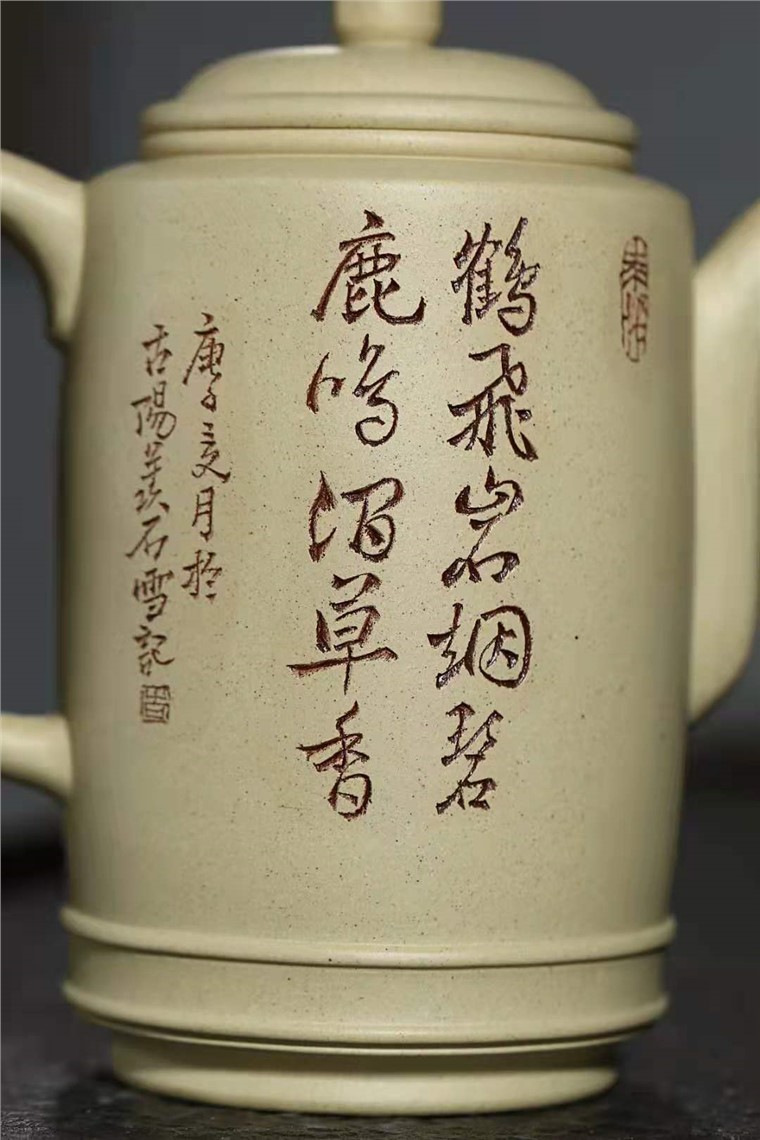 鶴飛岩烟碧
鹿鳴澗草香
庚子亥月於
古陽羡石雪記